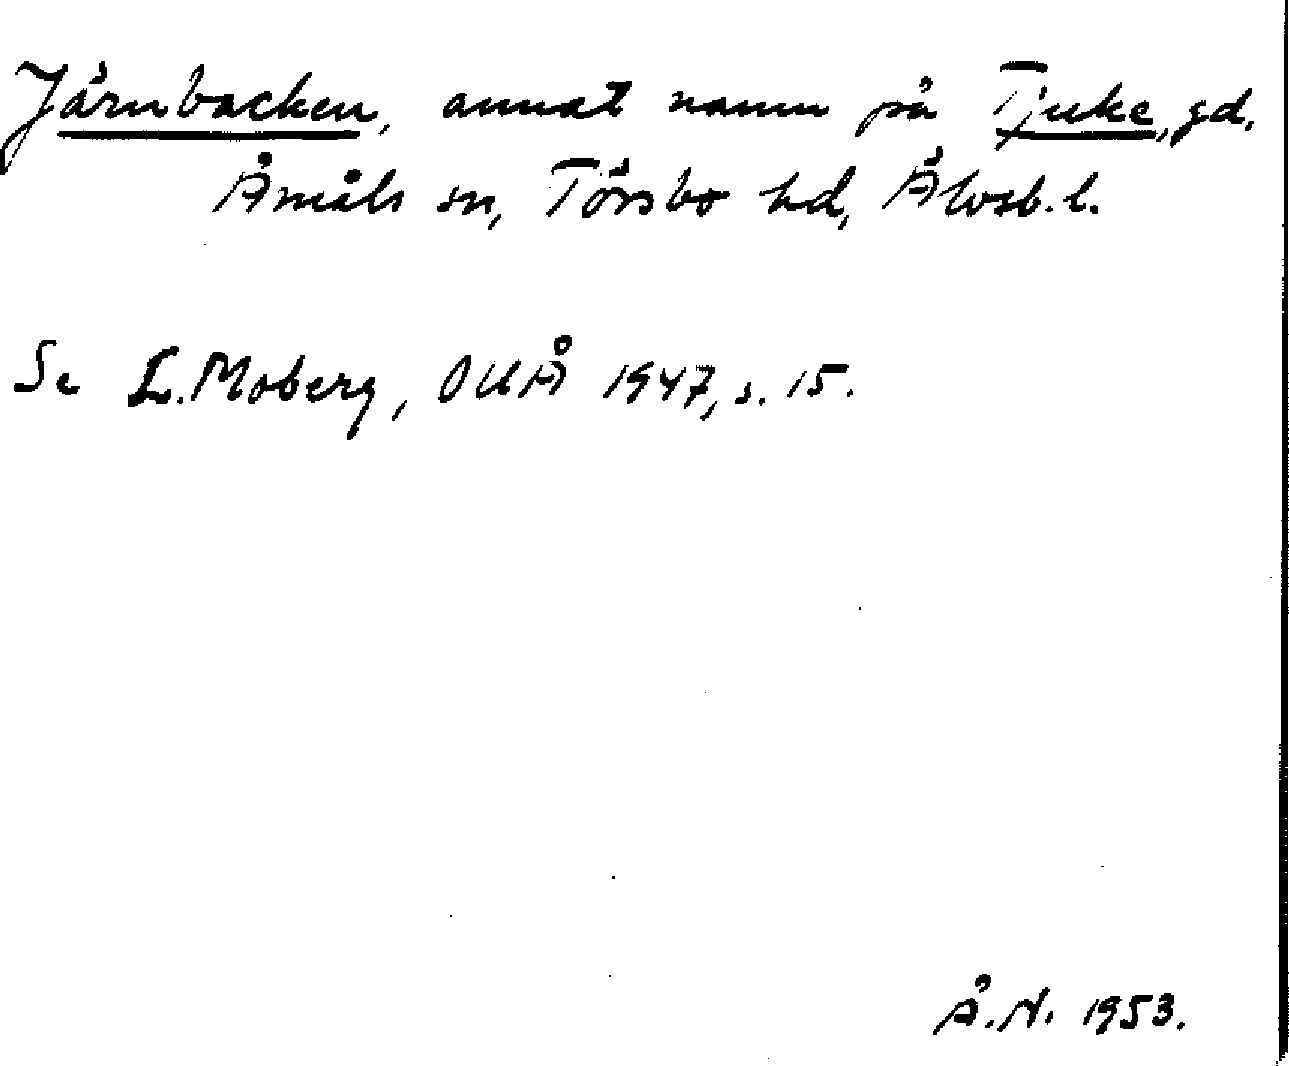 Järnbacken, annat namn på Tjuke, gd,
Åmåls sn, Tössbo hd, Älvsb. l.
Se L. Moberg, OUÅ 1947, s. 15.
Å. N. 1953.